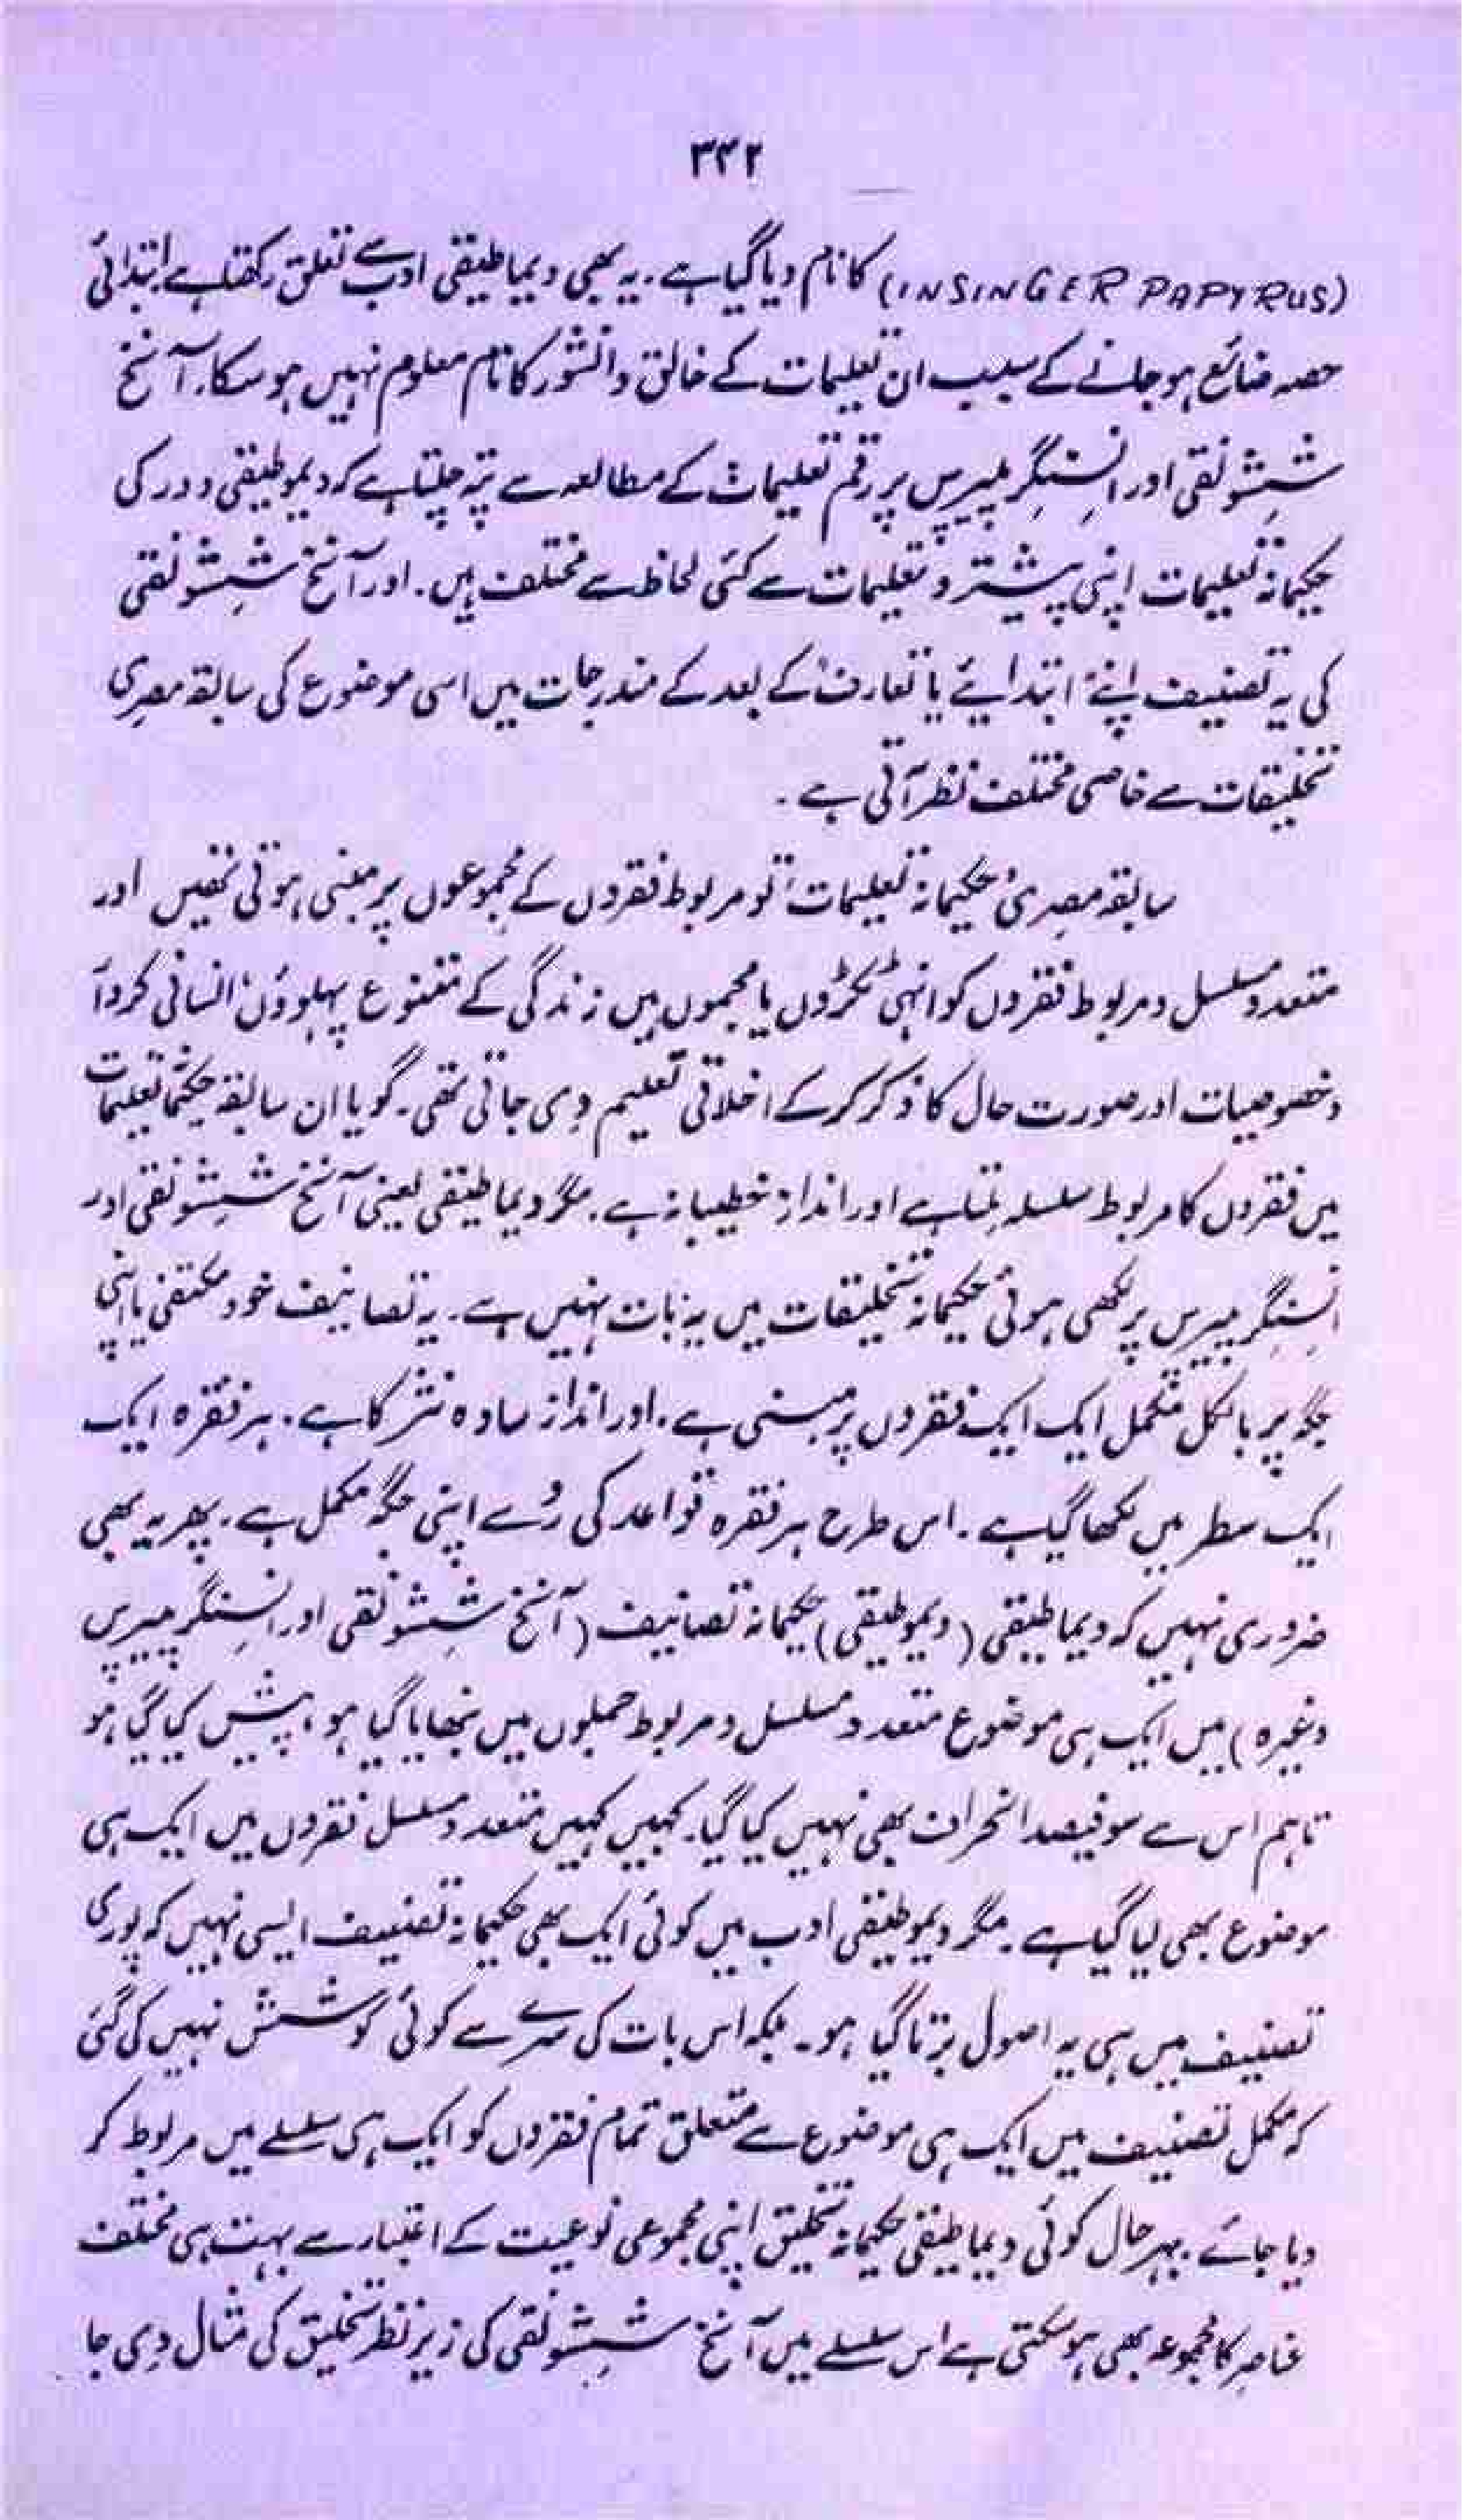 ۳۴۲
(INSINGER PAPYRUS) کا نام دیا گیا ہے ۔ یہ بھی دیماطیقی ادب سے تعلق رکھتا ہے ابتدائی
حصہ ضائع ہو جانے کے سبب ان تعلیمات کے خالق دانشور کا نام معلوم نہیں ہو سکا۔ آنخ
شیشونقی اور انسِنگر پیپرس پر رقم تعلیمات کے مطالعہ سے پتہ چلتا ہے کہ دیموطیقی دور کی
حکیمانہ تعلیمات اپنی پیشتر و تعلیمات سے کئی لحاظ سے مختلف ہیں ۔ اور آنخ شیشونقی
کی یہ تصنیف اپنے ’ابتدائیے یا تعارف‘ کے بعد کے مندرجات میں اسی موضوع کی سابقہ مصری
تخلیقات سے خاصی مختلف نظر آتی ہے ۔
سابقہ مصری ’حکیمانہ تعلیمات‘ تو مربوط فقروں کے مجموعوں پر مبنی ہوتی تھیں اور
متعدد مسلسل و مربوط فقروں کو انہی ٹکڑوں یا مجموں میں زندگی کے متنوع پہلوؤں‘ انسانی کردار
و خصوصیات اور صورت حال کا ذکر کر کے اخلاقی تعلیم دی جاتی تھی ۔ گویا ان سابقہ حکیمانہ تعلیمات
میں فقروں کا مربوط سلسلہ ملتا ہے اور اندازِ خطیبانہ ہے ۔ مگر دیماطیقی یعنی آنخ شیشونقی اور
انسِنگر پیپرس پر لکھی ہوئی حکیمانہ تخلیقات میں یہ بات نہیں ہے ۔ یہ تصانیف خود مکتفی یا اپنی
جگہ پر بالکل مکمل ایک ایک فقروں پر مبنی ہے ۔ اور انداز سادہ نثر کا ہے ۔ ہر فقرہ ایک
ایک سطر میں لکھا گیا ہے ۔ اس طرح ہر فقرہ قواعد کی رُو سے اپنی جگہ مکمل ہے ۔ پھر یہ بھی
ضروری نہیں کہ دیماطیقی (دیموطیقی) حکیمانہ تصانیف (آنخ شیشونقی اور انسِنگر پیپرس
وغیرہ) میں ایک ہی موضوع متعدد مسلسل و مربوط جملوں میں نبھایا گیا ہو ، پیش کیا گیا ہو
تاہم اس سے سو فیصد انحراف بھی نہیں کیا گیا ۔ کہیں کہیں متعدد مسلسل فقروں میں ایک ہی
موضوع بھی لیا گیا ہے ۔ مگر دیموطیقی ادب میں کوئی ایک بھی حکیمانہ تصنیف ایسی نہیں کہ پوری
تصنیف میں ہی یہ اصول برتا گیا ہو ۔ بلکہ اس بات کی سرے سے کوئی کوشش نہیں کی گئی
کہ مکمل تصنیف میں ایک ہی موضوع سے متعلق تمام فقروں کو ایک ہی سلسلے میں مربوط کر
دیا جائے ۔ بہر حال کوئی دیماطیقی حکیمانہ تخلیق اپنی مجموعی نوعیت کے اعتبار سے بہت ہی مختلف
عناصر کا مجموعہ بھی ہو سکتی ہے اس سلسلے میں آنخ شیشونقی کی زیرِ نظر تخلیق کی مثال دی جا